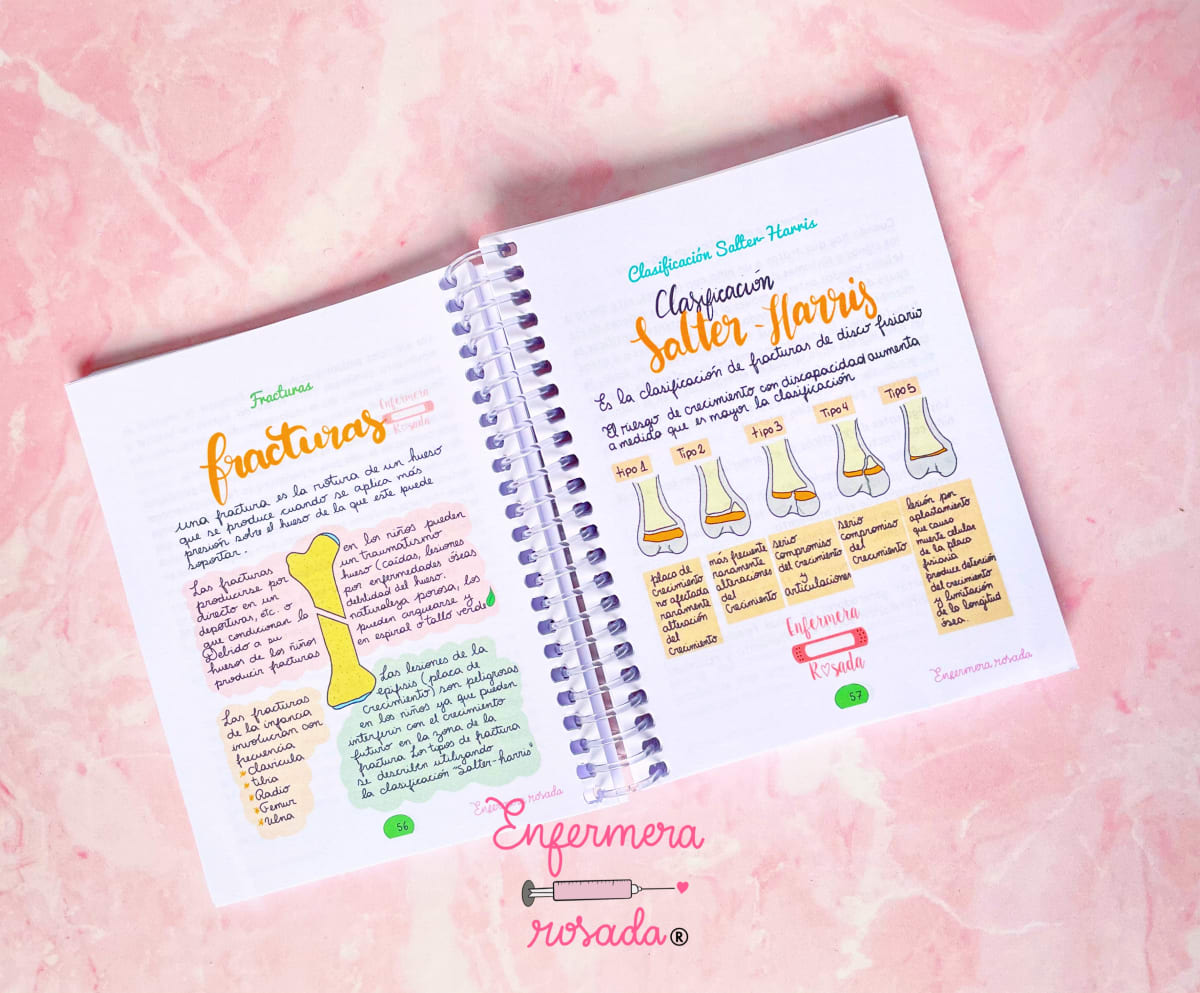 Fracturas
fracturas
Enfermera
Rosada
una fractura es la rotura de un hueso
que se produce cuando se aplica más
presión sobre el hueso de la que este puede
soportar.
Las fracturas
producirse por
directo en un
deportivas, etc. o
que condicionan la
Debido a su
huesos de los niños
producir fracturas
en los niños pueden
un traumatismo
hueso (caídas, lesiones
por enfermedades óseas
debilidad del hueso.
naturaleza porosa, los
pueden arquearse y
en espiral o tallo verde
Las fracturas
de la infancia
involucran con
frecuencia
*clavicula
*tibia
*Radio
*Femur
*Ulna
Las lesiones de la
epífisis (placa de
crecimiento) son peligrosas
en los niños ya que pueden
interferir con el crecimiento
futuro en la zona de la
fractura Los tipos de fractura
se describen utilizando
la clasificación "Salter-harris"
Enfermera rosada
56
Clasificación Salter-Harris
Clasificación
Salter-Harris
Es la clasificación de fracturas de disco fisiario
El riesgo de crecimiento con discapacidad aumenta
a medida que es mayor la clasificación
tipo 1
Tipo 2
tipo 3
Tipo 4
Tipo 5
placa de
crecimiento
no afectada
raramente
alteración
del
crecimiento
más frecuente
raramente
alteraciones
del
crecimiento
serio
compromiso
del crecimiento
y
articulaciones
serio
compromiso
del
crecimiento
lesión por
aplastamiento
que causa
muerte celular
de la placa
fisiaria
produce detención
del crecimiento
y limitación
de la longitud
ósea.
Enfermera
Rosada
Enfermera rosada
57
Enfermera
rosada®